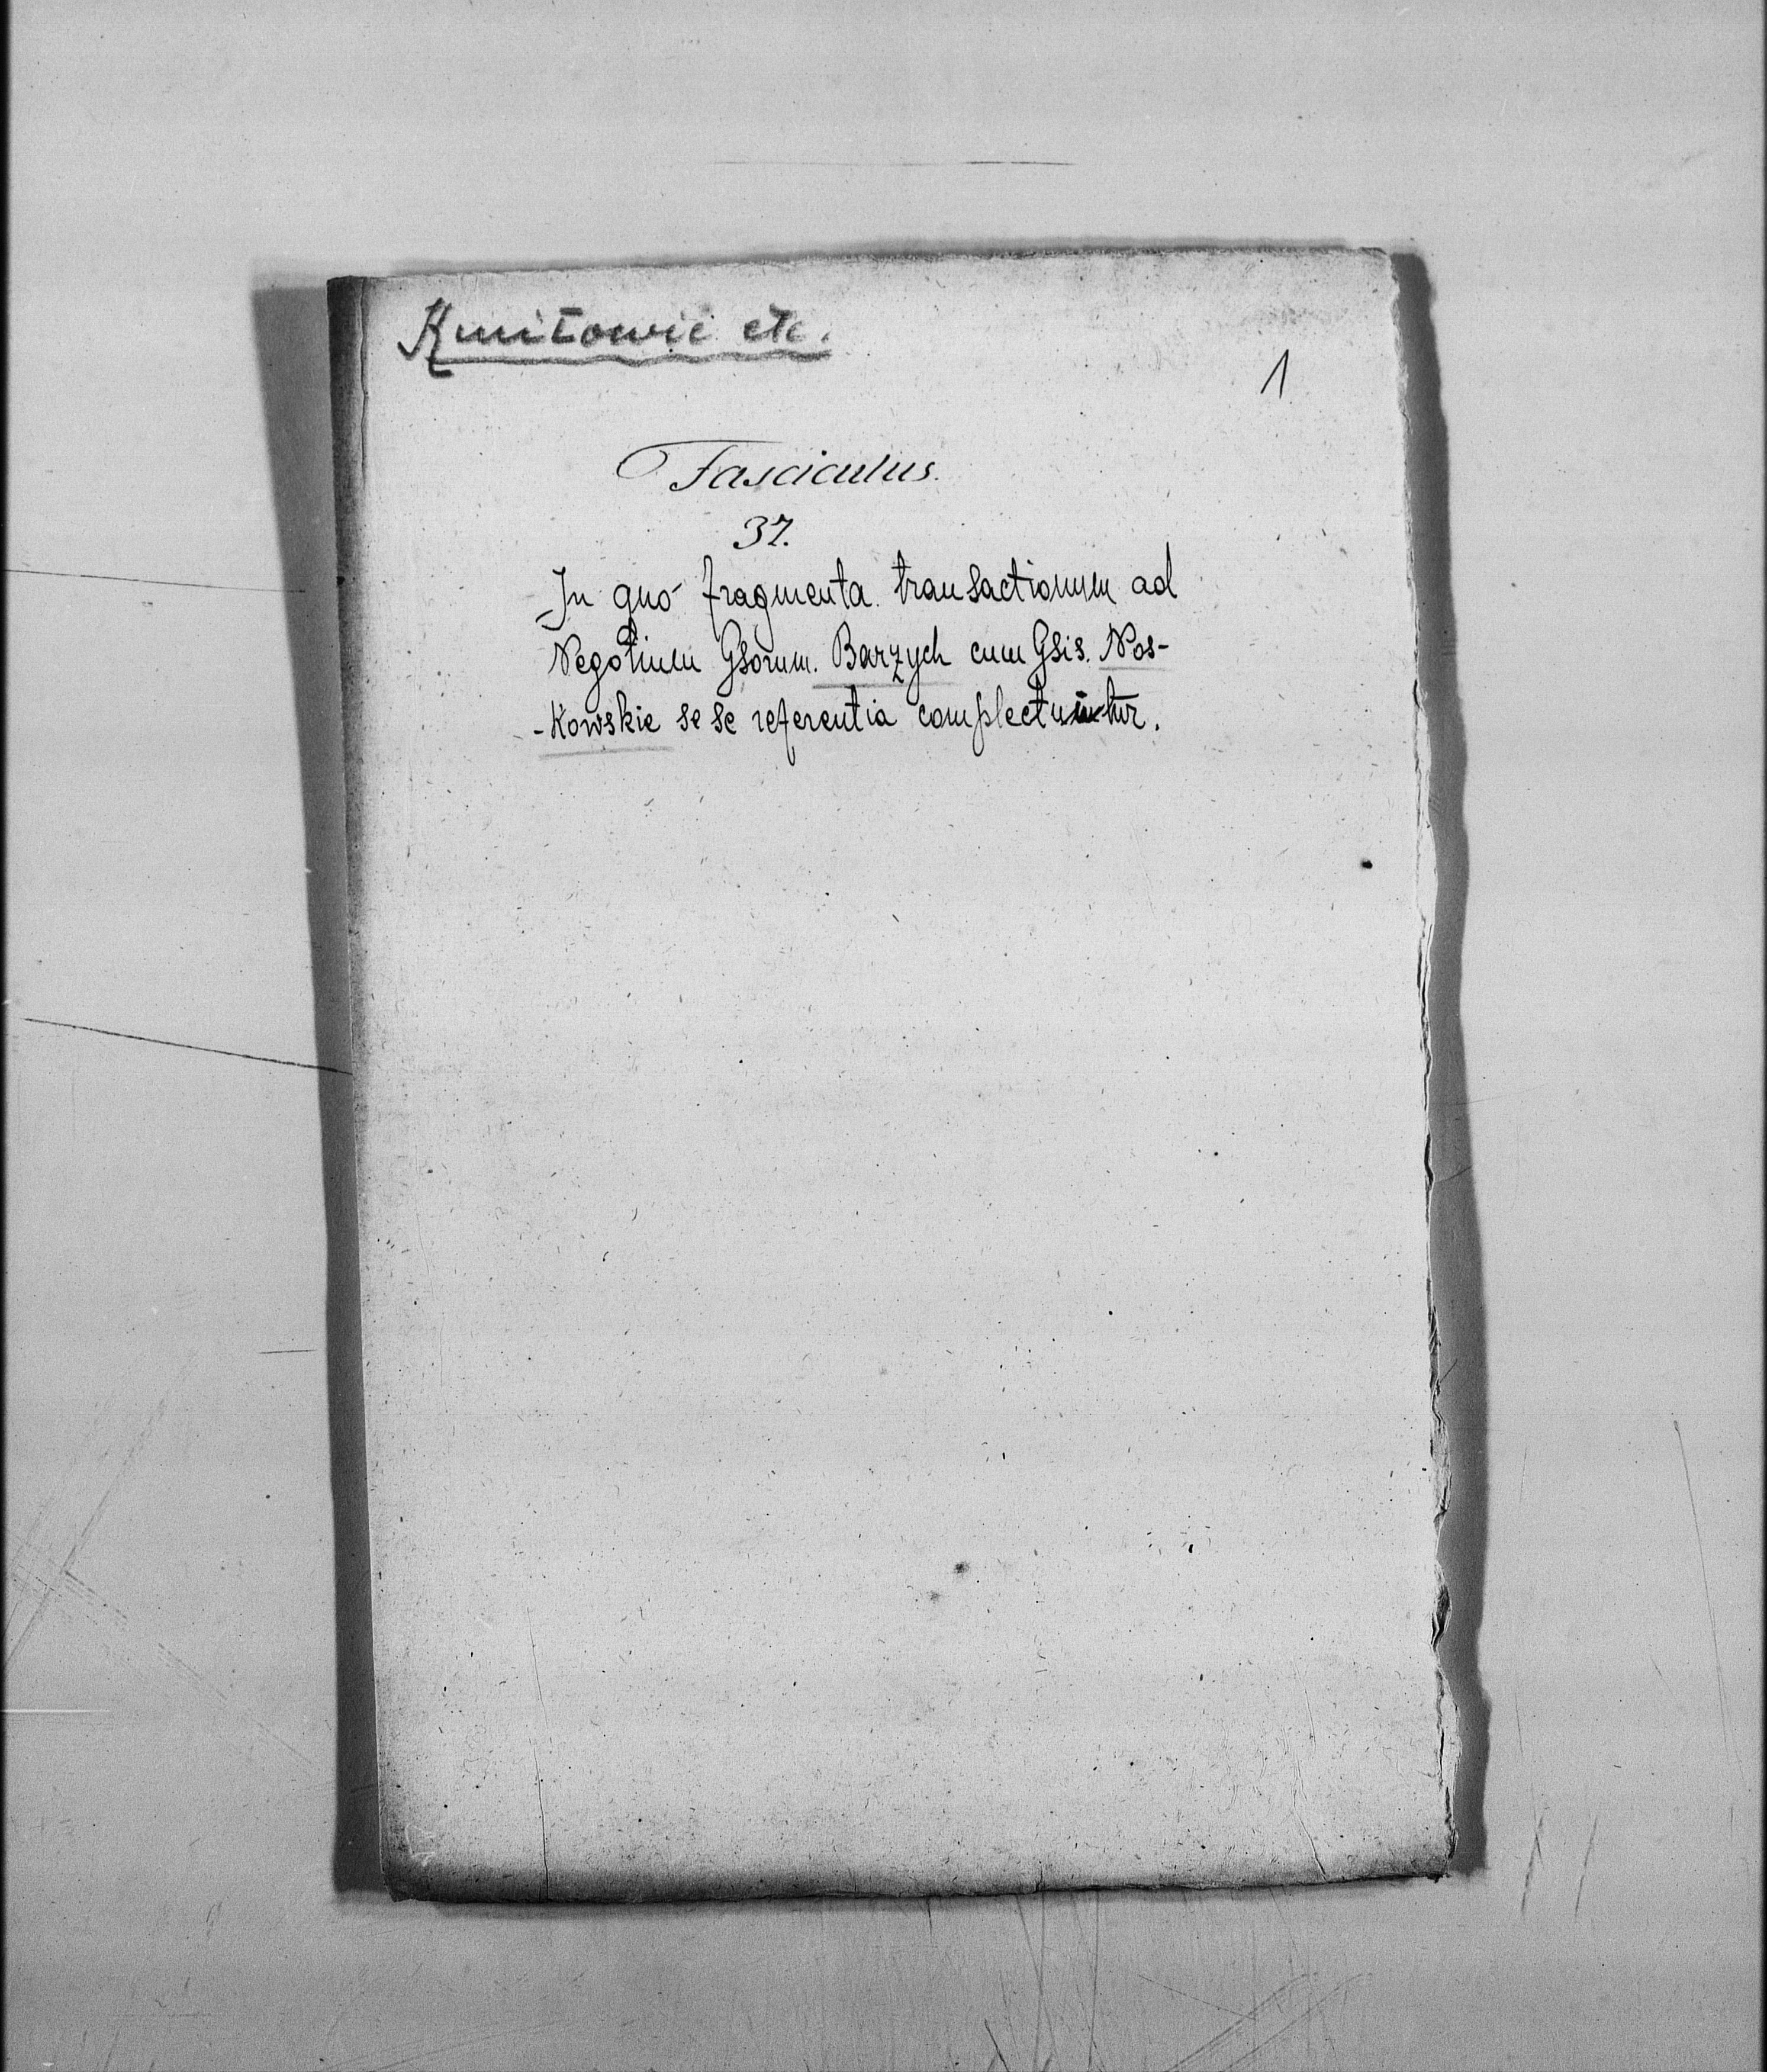 Kmitowie etc.
1
Fasciculus.
37.
In quo fragmenta transactionum ad
Negotium Gsorum. Barzych cum Gsis. Nos-
-kowskie se se referentia complectuntur.